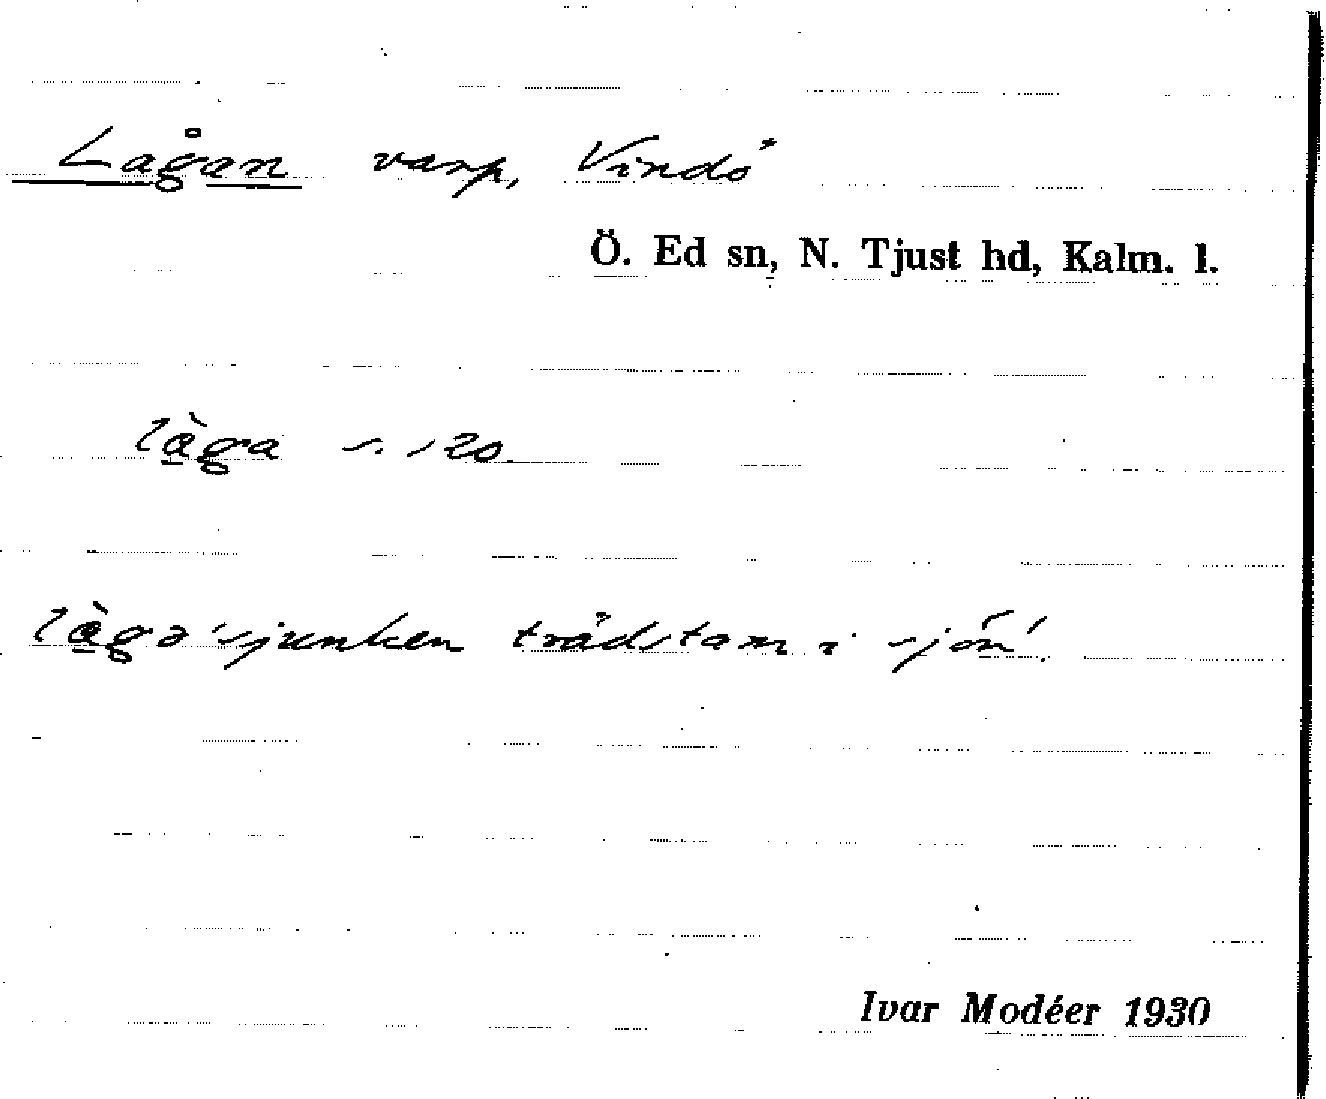 Lågan varp, Vindö
Ö. Ed sn, N. Tjust hd, Kalm. l.
lå̀ga s. 120.
lå̀gə 'sjunken trädstam i sjön'.
Ivar Modéer 1930